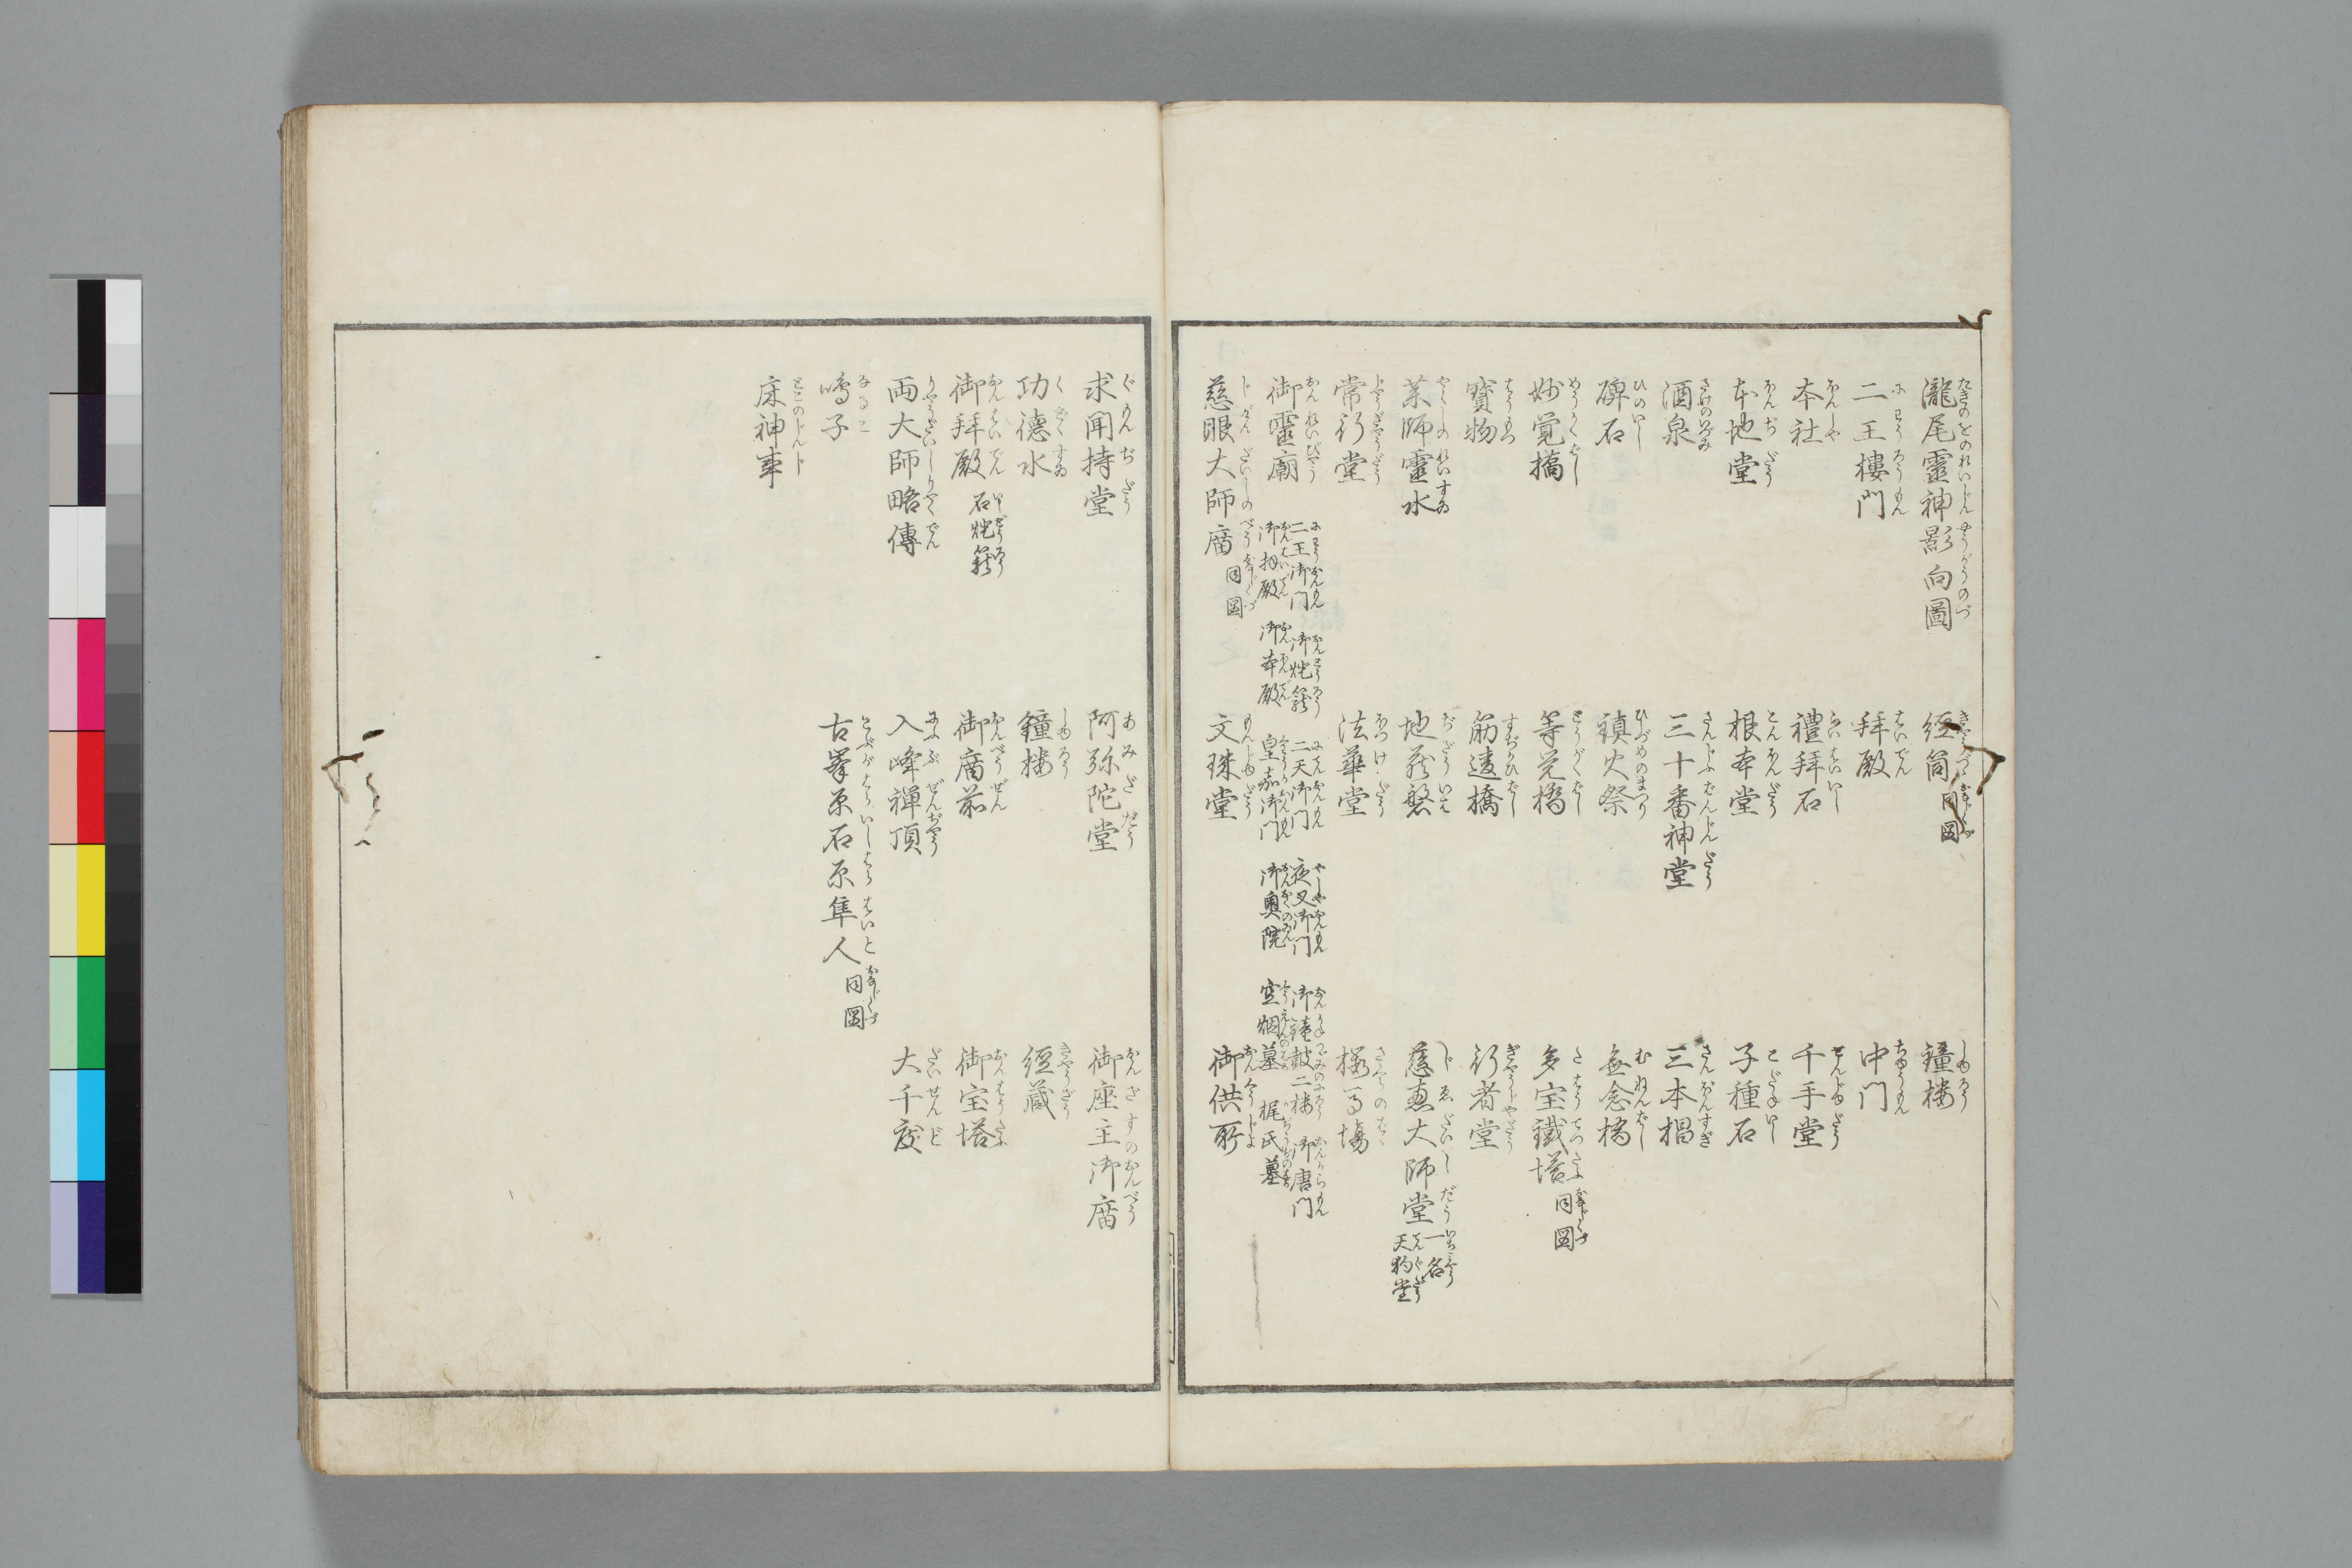 瀧尾靈神影向圖　經筒 同図　鐘楼
二王樓門　拜殿　中門
本社　禮拜石　千手堂
本地堂　根本堂　子種石
酒泉　三十番神堂　三本椙
碑石　鎮火祭　無念橋
妙覚橋　等覚橋　多宝鐵塔 同図
寶物　筋違橋　行者堂
薬師靈水　地蔵磐　慈恵大師堂 一名天狗堂
常行堂　法華堂　桜馬場
御靈廟
二王御門　御燈籠　二天御門　夜叉御門　御鐘鼓二楼　御唐門
御拝殿　御本殿　皇嘉御門　御奥院　空烟墓　梶氏墓
慈眼大師廟 同図　文珠堂　御供所
求聞持堂　阿弥陀堂　御座主御廟
功德水　鐘楼　經蔵
御拜殿 石燈籠　御廟前　御宝塔
両大師略傳　入峰禅頂　大千度
鳴子　古峯原石原隼人 同図
床神事